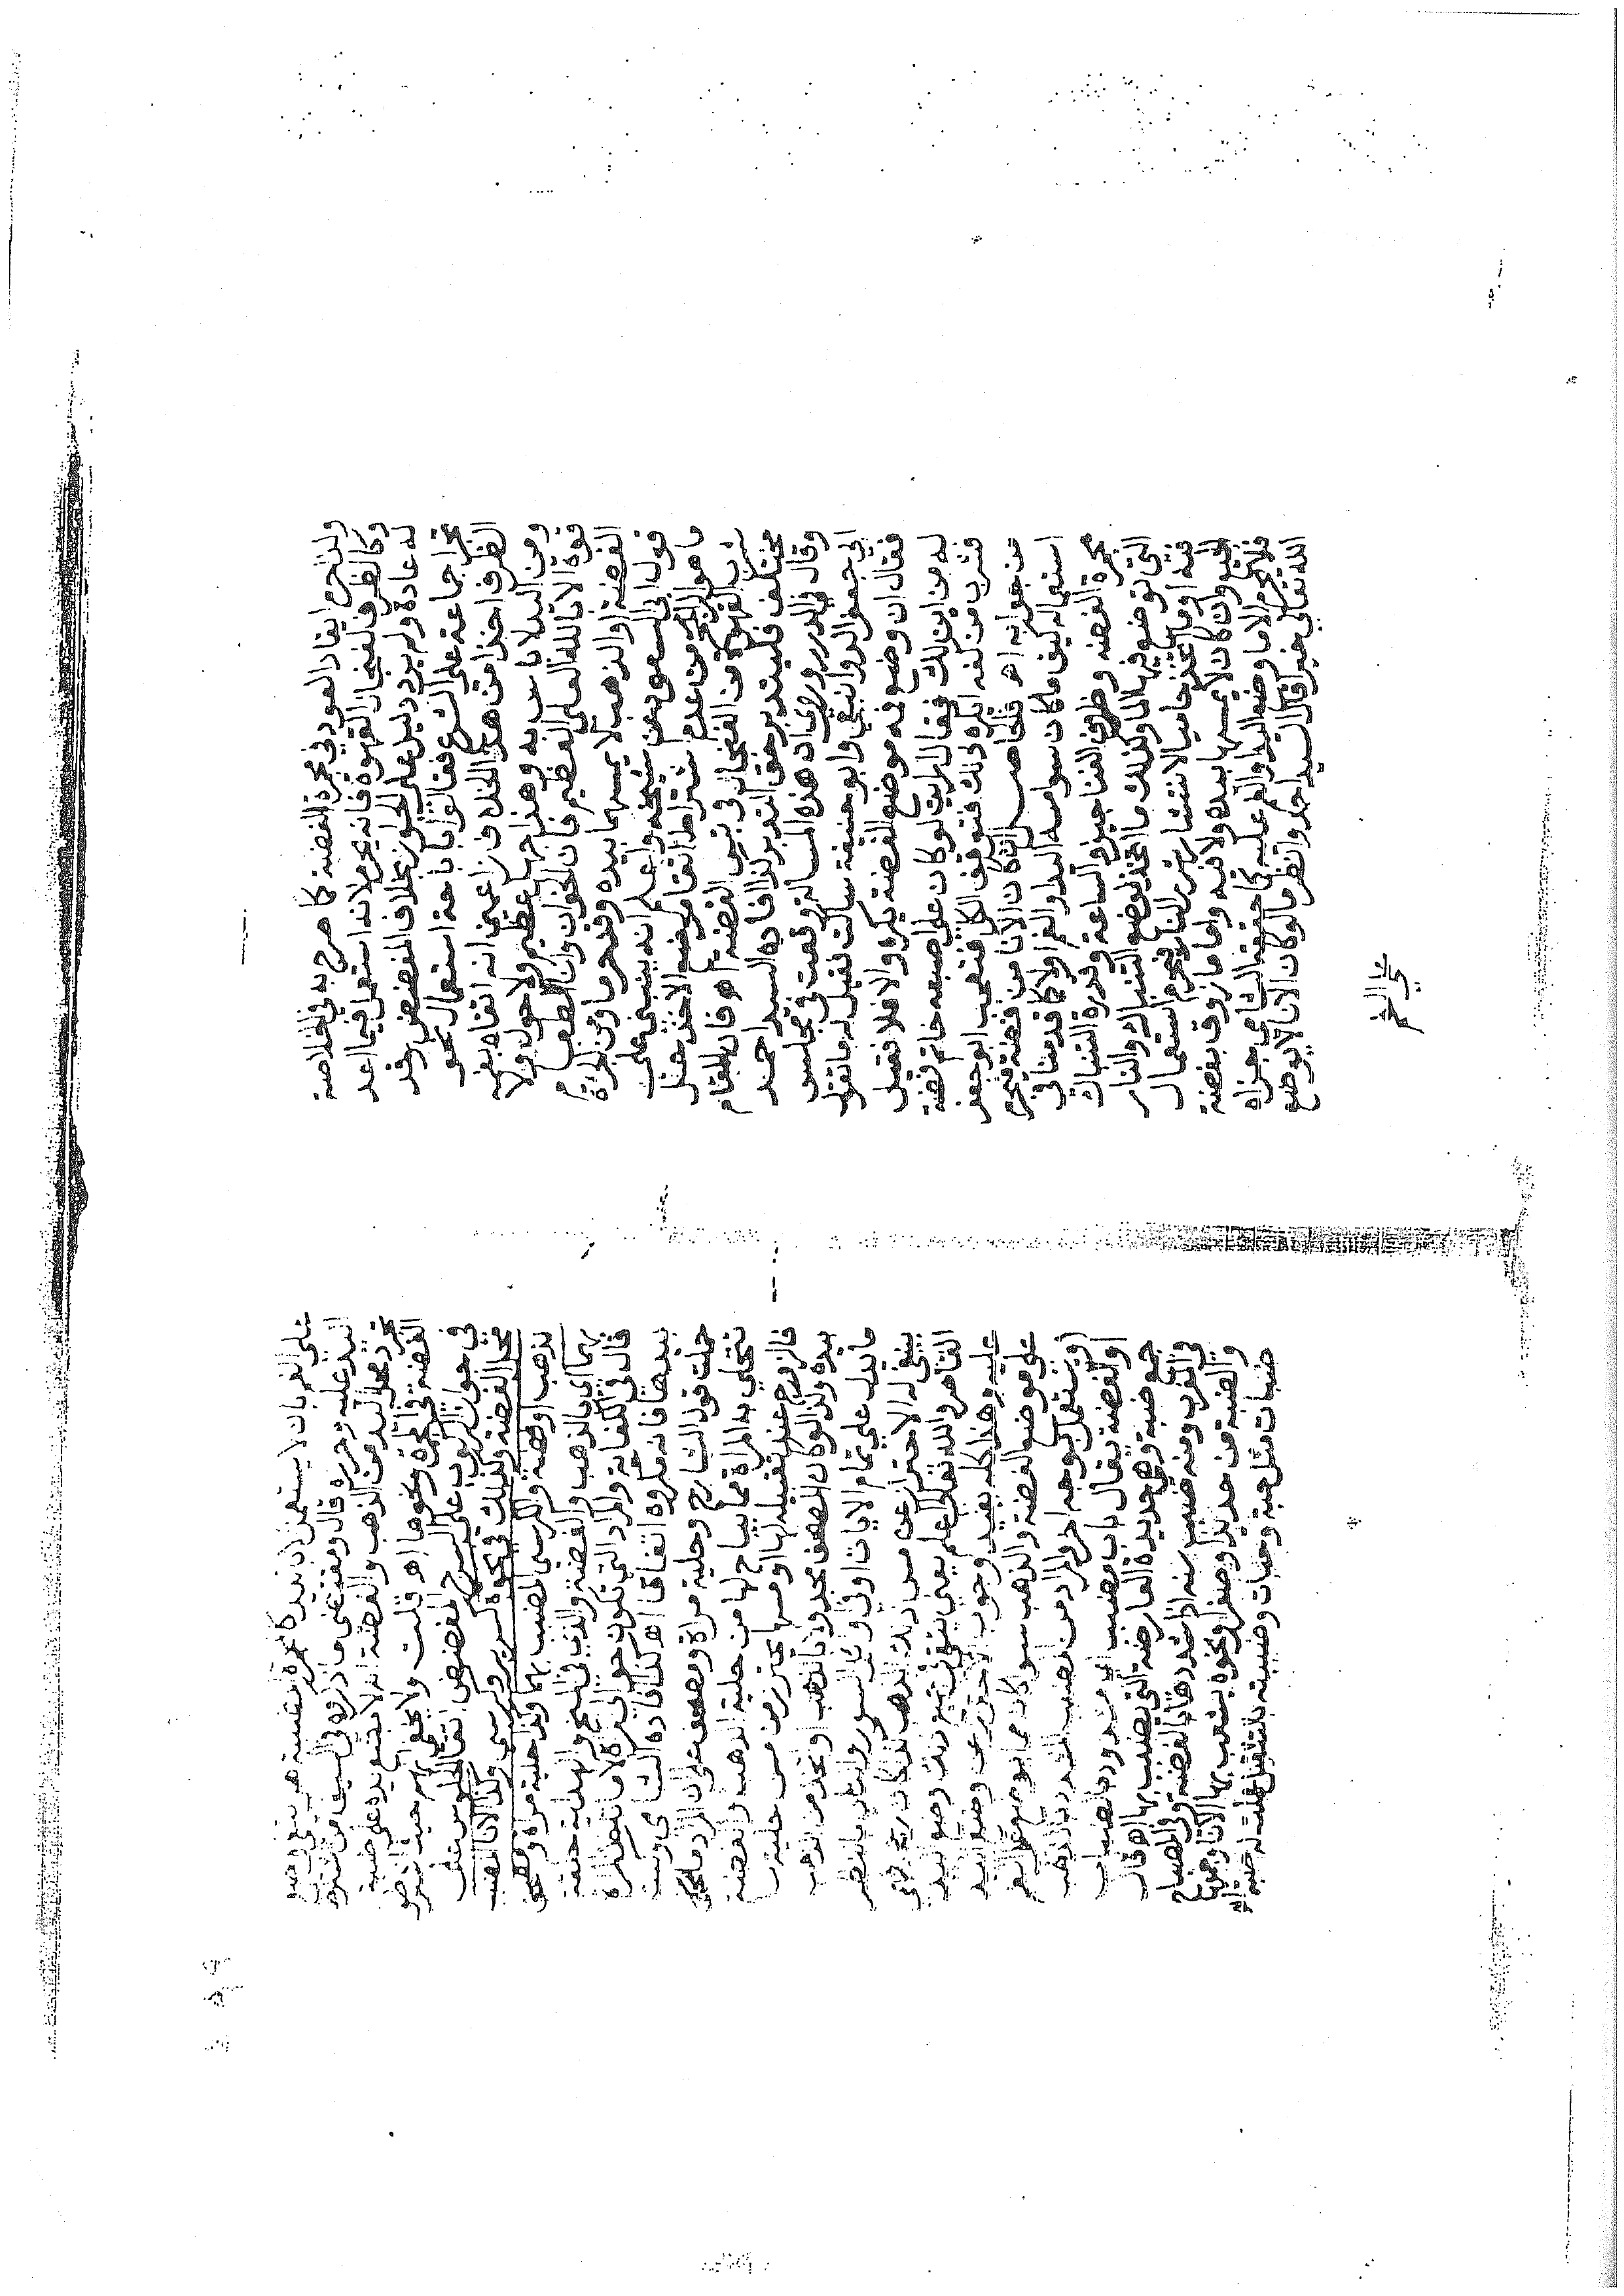 وليحرم ايقاد العود في مجمرة الفضة كما صرح به في الخلاصة
وكالظرف لفنجان القهوة فانه يحرم لانه استعمل فيما اعد
له عادة ولم يرد دليل على الحلو بخلاف المفضض وقد
جماعة على الشرع فقالوا باباحة استعمال نحو
الظرف اخذا من هذا الخلاف زاعمين انه اتقاه بفمه
ومن اليد لا باس به وهذا جهل عظيم ولا حول ولا
قوة الا بالله العلي العظيم فان الخوان واناء الطعام
الفضة او الذهب لا يمسهما بيده وقد حرما ومن
قول ابي السعود عن شيخه واعلم انه ينبني على
ما هو من عدم اشتراط اتقا موضع الاخذ حل
شرب القهوة من الفنجان في تبسي الفضة اهـ فان المقام
مختلف فليتدبر حق التدبر كذا افاده السيد احمد
وقال في الدرر وروي ان هذه المسالة وقعت في مجلس
ابي جعفر الدوانيقي وابو حنيفة سالت فقيل له ما تقول
فقال ان وضع فمه موضع الفضة يكره والا فلا فقيل
له من اين لك فقال ارايت لو كان على اصبعه خاتم فضة
فشرب من كفه ايكره ذلك فتوقف الكل فتعجب ابو جعفر
من جوابه اهـ فالحاصل ان كان الانا من فضة فيحرم
استعماله كيف ما كان سوا مسه اليد او الفم اولا كما قدمنا في
مجمرة الفضة وظرف الفناجين والساعة وقدرة التنباك
التي توضع فيها الماء وكذلك ما اتخذ لوضع التنباك والنار
فيه او ما اتخذ حاميا لانتشار شرر النار فيحرم استعمال
وان كان لا يمسها بيده ولا فيه واما ما زوق بفضة
فلا يحرم الا ما وضع اليد او الفم عليه كما حققه الشامي جزاه
الله تعالى خيرا قال السيد احمد وانظر ما لو كان الانا لا يوضع
على الفم
على الفم بان لا يستعمل الا باليد كالمحبرة المضببة هل ينبغي وضع
اليد عليه وحرره قال ومقتضى ما ذكروه في السيف من اشتراط
محل اليد من الذهب والفضة انه لا يضع يده على ضبة
الفضة في المحبرة ونحوها اهـ قلت ولا يخفى انهم حيث اشترطوا
في جواز الركوب على السرج المفضض اتقا الجلوس على
محل الفضة وكذلك في نحو السرير والكرسي وكذا الانا المضبب
بذهب او فضة والكرسي المضبب بهما وكذا حلية مراة ومصحف
بهما اي بالذهب والفضة والذي في المنح والهداية حلقة
قال في الكفاية والمراد التي تكون حوالي المراة لا ما تنظر المراة
بيدها فانه مكروه اتفاقا اهـ كذا افاده الشامي وليست
حملت قول الشارح وحلية مراة ومصحف على ان المراد ما يحل
تتحلى به المراة مما يباح لها من حلية الذهب والفضة
فالزوج عند تقبيله لها او مسها يحترز من مس حليتها
بيده وكذا لو كان المصحف مجدولا بالذهب او نحوه من الذهب
ما يدل على تمام الايات او في وئل السور وانثار بالنظر
ينبغي له الاحتراز عن مس ذلك الذهب اذا كان
الظاهر والله تعالى اعلم يعني بتوقي شيئين ذلك وضع اليد
عليه وهذا كله يفيد وجوب الاحتراز عن وضع اليد
على موضع الفضة والذهب سوا كان مما يوضع على الفم
او يستعمل بوجه اخر والمراد من المضبب المشدد بالذهب
او الفضة يقال باب مضبب اي مشدود بالضباب
جمع ضبة وهي حديدة العارضة التي يضبب بها اهـ قال
في المغرب ومنه ضبب سنه اذا شدها بالفضة وفي المصباح
والضبة من حديد او صفر او نحوه يشعب بها الاناء وجمعها
ضبات مثل حبة وحبات وضببته بالتثقيل عملت له ضبة